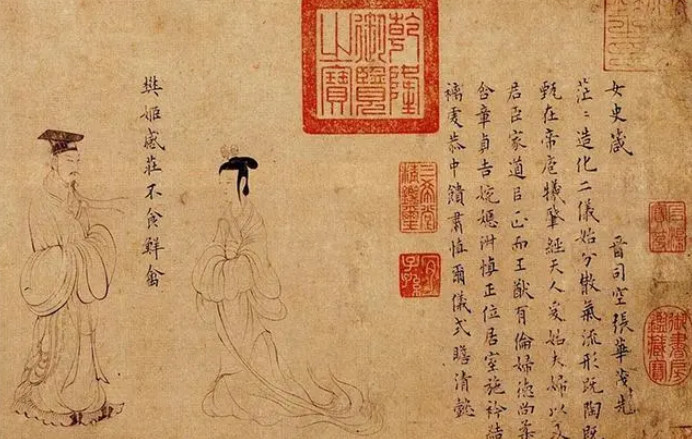 女史箴 晉司空張華茂先
茫〻造化二儀始分散氣流形既陶既
甄在帝庖犧肇經天人爰始夫婦以及
君臣家道㠯正而王猷有倫婦德尚柔
含章貞吉婉嫕淑慎正位居室施衿結
褵虔恭中饋肅慎爾儀式瞻清懿
乾隆御覽之寶
三希堂精鑒璽
宜子孫
御書房鑑藏寶
樊姬感莊不食鮮禽